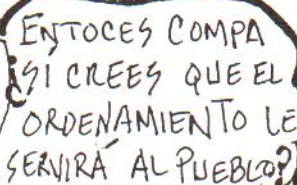 ENTOCES COMPA
¿SÍ CREES QUE EL
ORDENAMIENTO LE
SERVIRÁ AL PUEBLO?